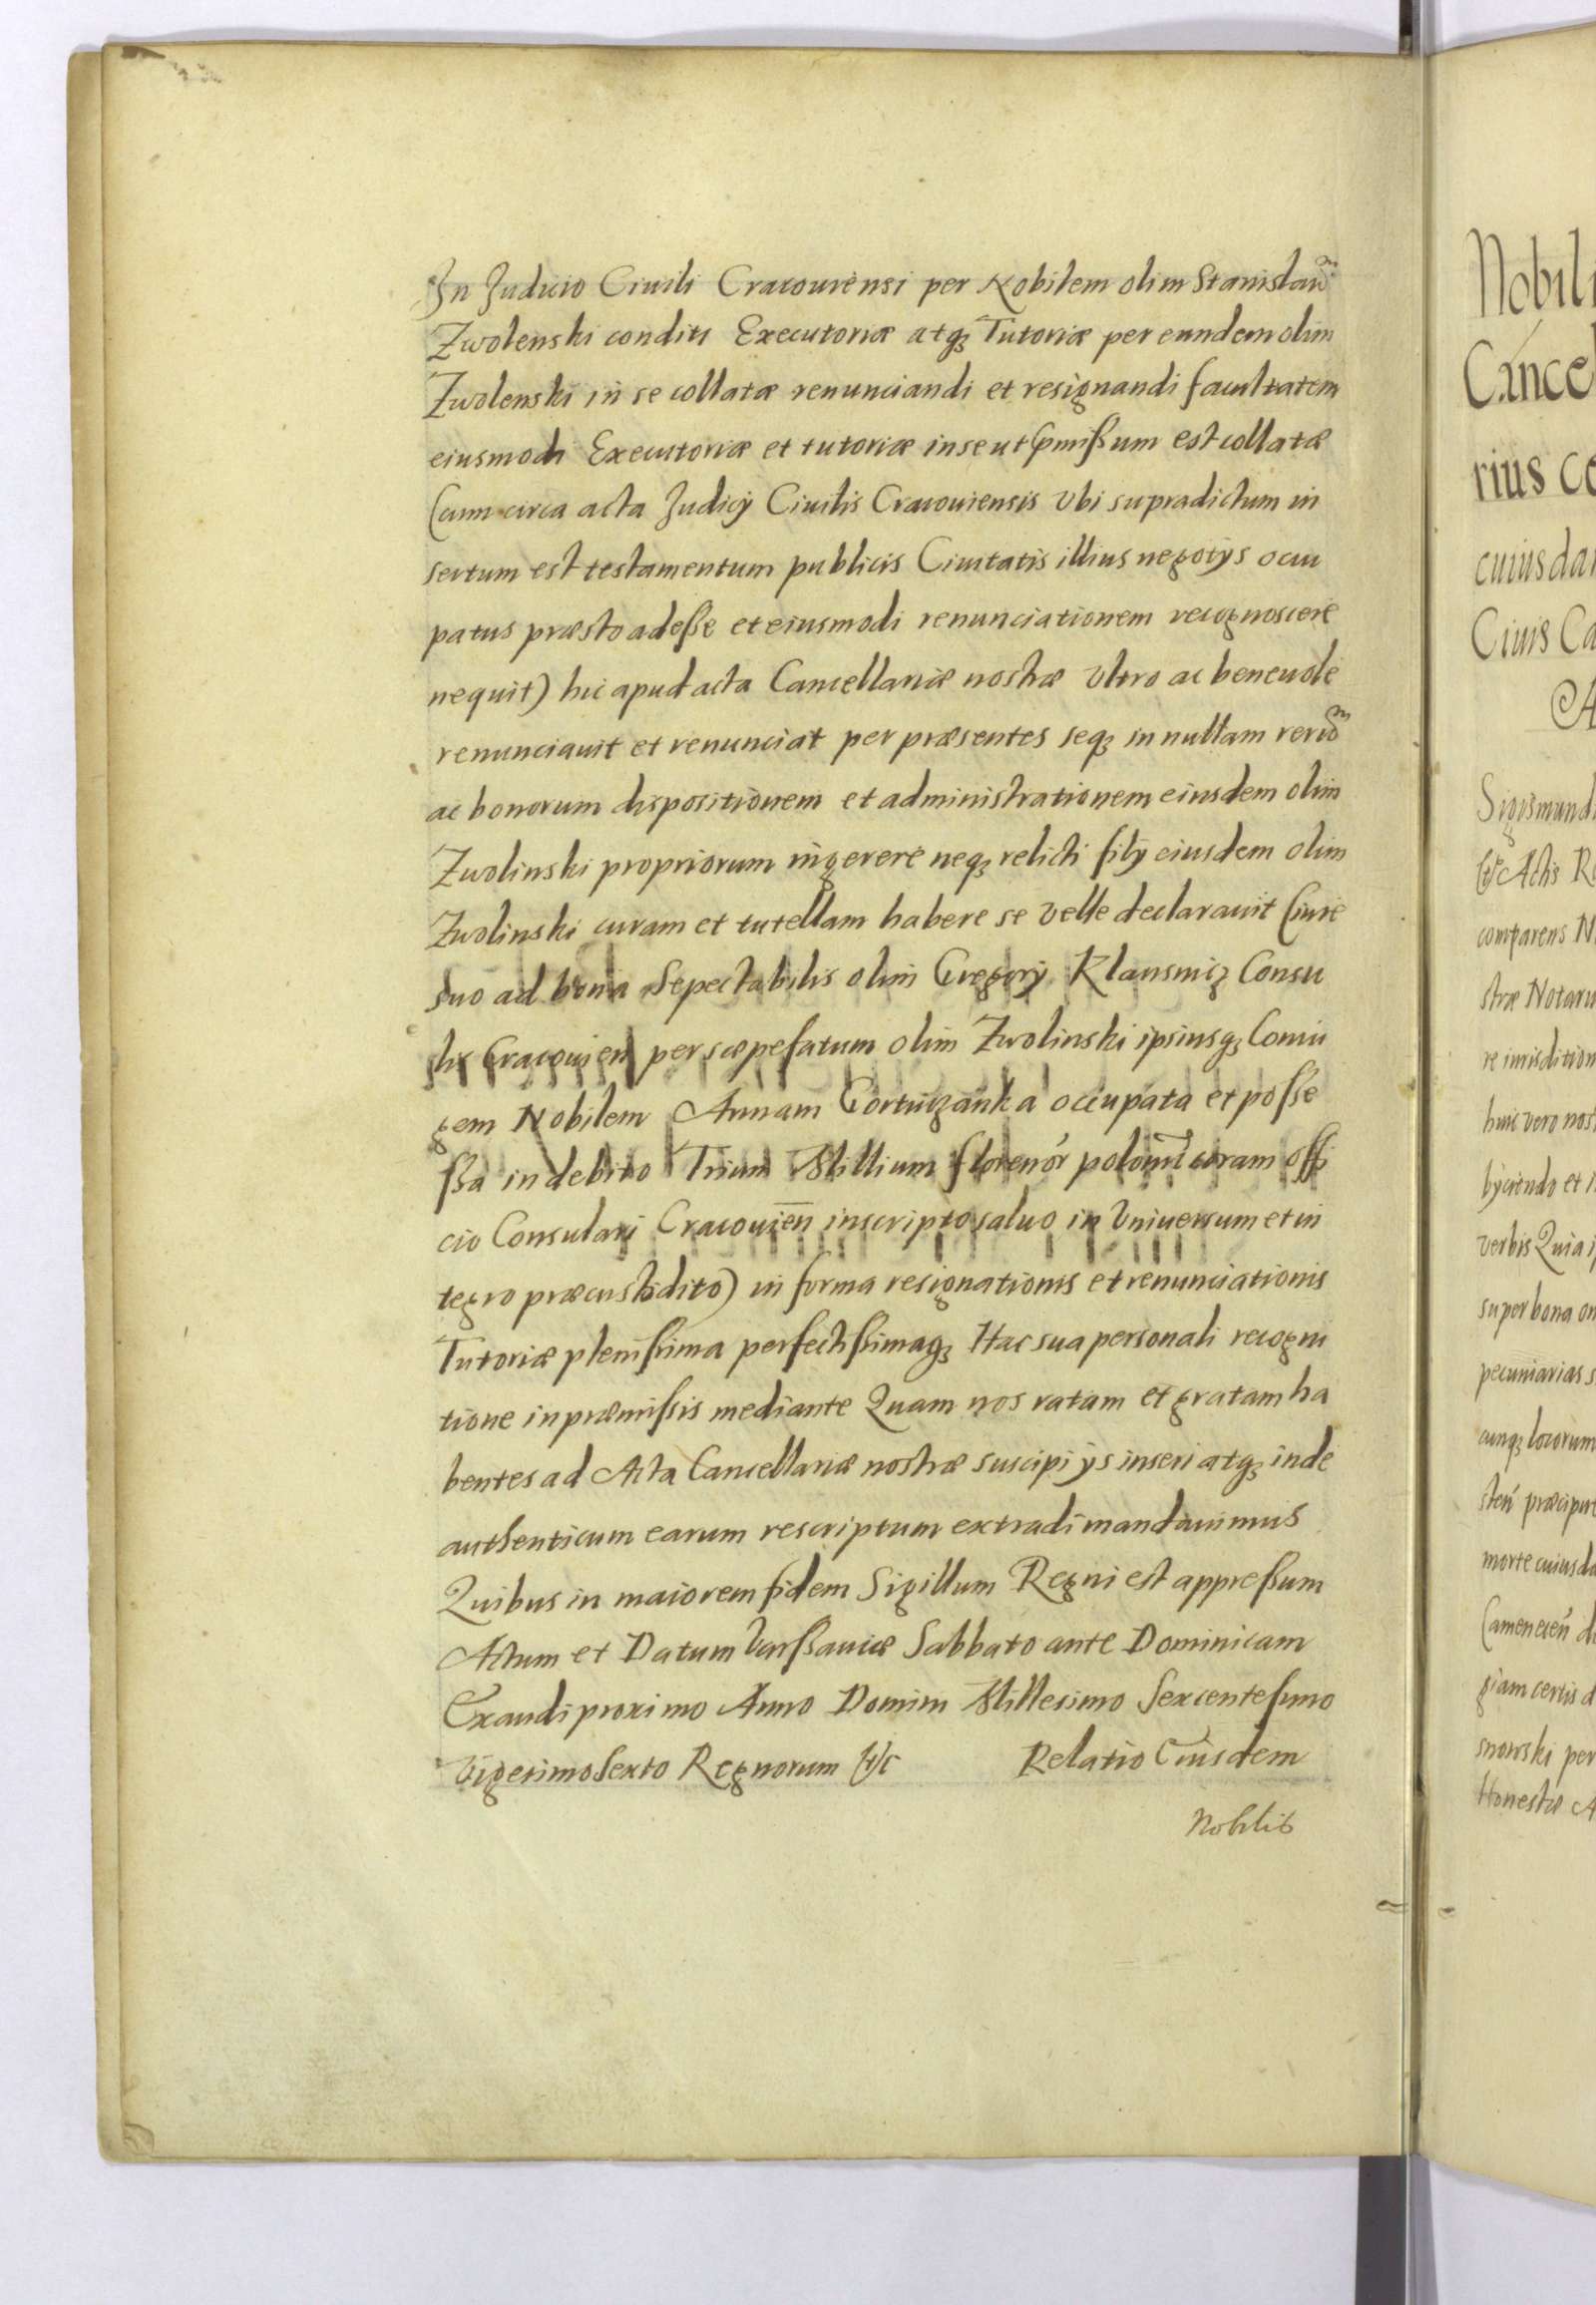 In Judicio Ciuili Cracouiensi per Nobilem olim Stanislaũ
Zwolenski conditi Executoriæ atq3 Tutoriæ per eundem olim
Zwolenski in se collatæ renunciandi et resignandi facultatem
eiusmodi Executoriæ et tutoriæ in se ut p̃mißum est collatæ
(cum circa acta Judicÿ Ciuilis Cracouiensis Vbi supradictum in
sertum est testamentum publicis Ciuitatis illius negotÿs occu
patus præsto adeße et eiusmodi renunciationem recognoscere
nequit) hic apud acta Cancellariæ nostræ Vltro ac beneuole
renunciauit et renunciat per præsentes seq3 in nullam rerũ
ac bonorum dispositionem et administrationem eiusdem olim
Zwolinski propriorum ingerere neq3 relicti filÿ eiusdem olim
Zwolinski curam et tutellam habere se Velle declarauit (iure
suo ad bona Sepectabilis olim Gregorÿ Klausnicz Consu
lis Cracouien̄ per sæpefatum olim Zwolinski ipsiusq3 Coniu
gem Nobilem Annam Cortuiczanka occupata et poße
ßa in debito Trium Millium florenor̃ polonũ coram offi
cio Consulari Cracouien̄ inscripto saluo in Vniuersum et in
tegro præcustodito) in forma resignationis et renunciationis
Tutoriæ plenißima perfectißimaq3 Hac sua personali recogni
tione in præmißis mediante Quam nos ratam et gratam ha
bentes ad Acta Cancellariæ nostræ suscipi ÿs inseri atq3 inde
authenticum earum rescriptum extradi mandauimus
Quibus in maiorem fidem Sigillum Regni est appreßum
Actum et Datum Varßauiæ Sabbato ante Dominicam
Exaudi proximo Anno Domini Millesimo Sexcentesimo
Vigesimo Sexto Regnorum etc Relatio Eiusdem
Nobilis
Nobili
Cancel
rius
cuiusdam
Ciuis Ca
Sigismund
Actis
comparens N
stræ Notariu
huic vero nost
verbis Quia
super bona
pecuniarias s
cunq3 locorum
morte cuiusda
giam certis d
snowski per
Honestæ A